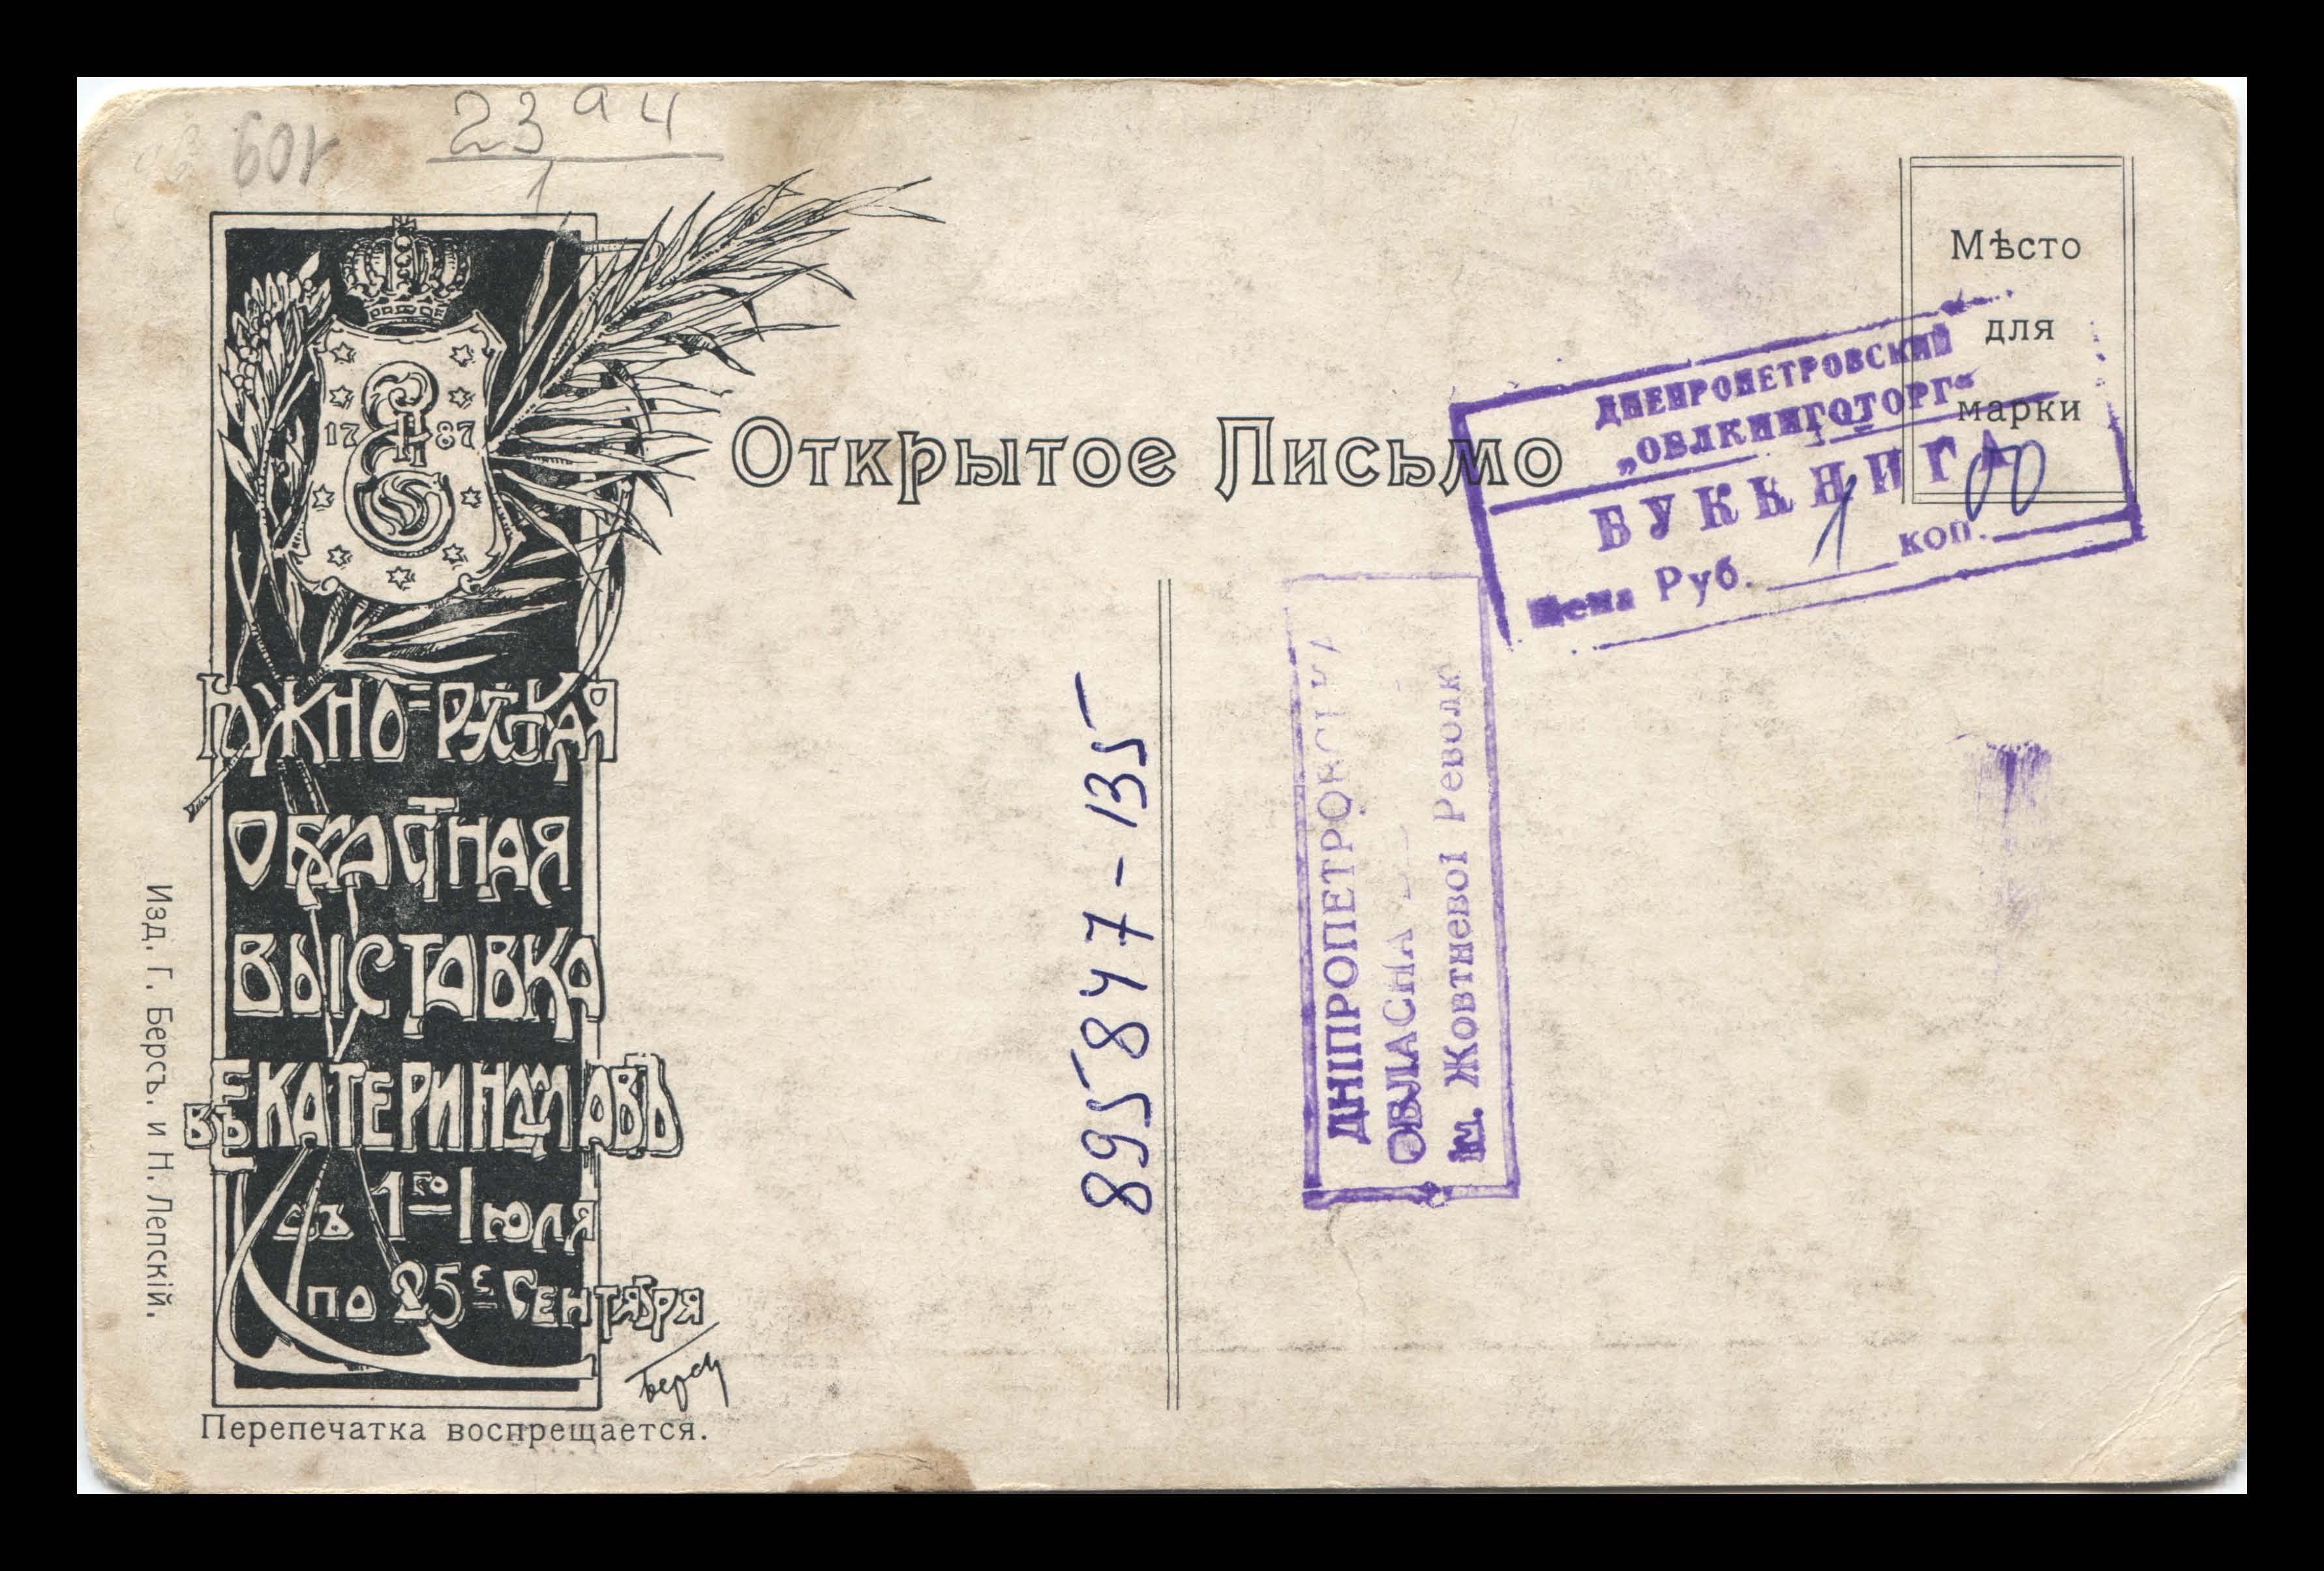 60г
23 а 4
1
17 87
Южно-Русская
Областная
Выставка
въ Екатеринославѣ
съ 1го Іюля
по 25е Сентября
Берсъ
Перепечатка воспрещается.
Изд. Г. Берсъ. и Н. Лепскій.
Открытое Письмо
Мѣсто
для
марки
ДНЕПРОПЕТРОВСКИЙ
„ОБЛКНИГОТОРГ“
БУККНИГА
Цена Руб. 1 коп. 00
895847-135
ДНІПРОПЕТРОВСЬКА
ОБЛАСНА
ім. Жовтневої Револю